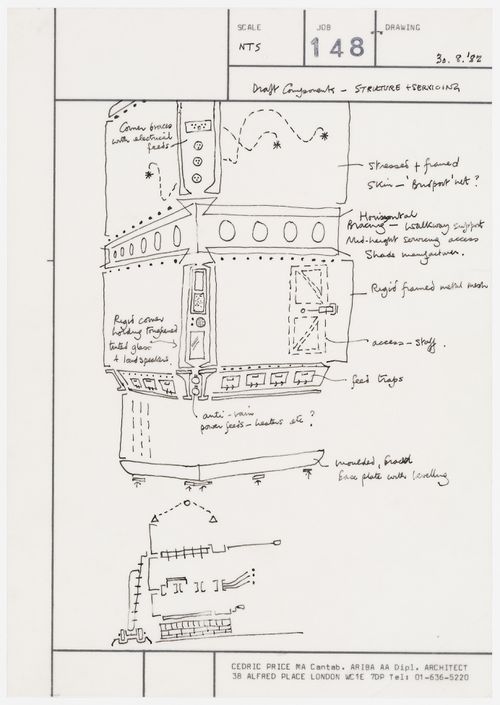 SCALE
NTS
JOB
148
DRAWING
30.8.'82
Draft Components – STRUCTURE + SERVICING
Corner braces
with electrical
feeds
stressed + framed
Skin – 'Bridport' net?
Horizontal
Bracing – walkway support
Mid-height servicing access
Shade manufacturer.
Rigid framed metal mesh
Rigid corner
holding toughened
tinted glass
+ loudspeakers
access – staff.
feed traps
anti-
power feeds – heaters etc?
moulded, braced
base plate with levelling
CEDRIC PRICE MA Cantab. ARIBA AA Dipl. ARCHITECT
38 ALFRED PLACE LONDON WC1E 7DP Tel: 01-636-5220